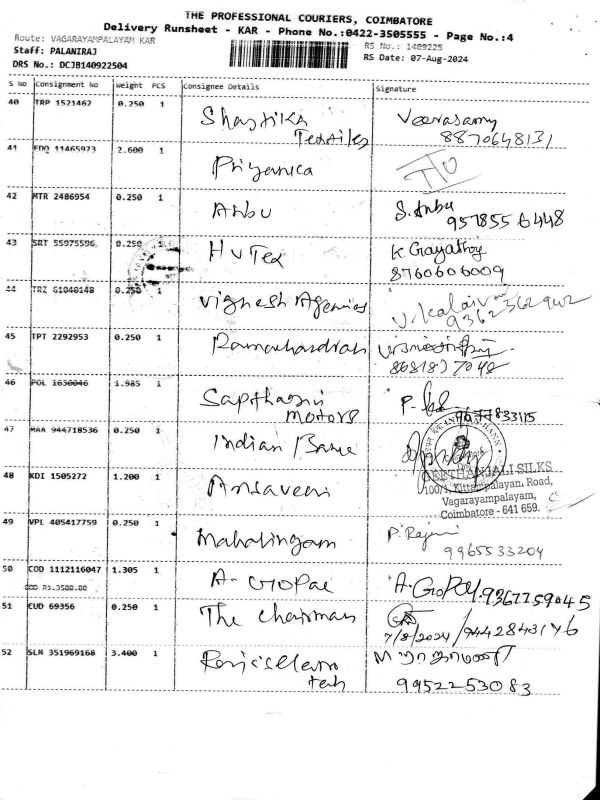 THE PROFESSIONAL COURIERS, COIMBATORE
Delivery Runsheet - KAR - Phone No.:0422-3505555 - Page No.:4
Route: VAGARAYAMPALAYAM KAR
RS No.: 1409225
Staff: PALANIRAJ
RS Date: 07-Aug-2024
DRS No.: DCJB140922504
S No Consignment No weight PCS Consignee Details Signature
40 TRP 1521462 0.250 1 Shastika Textiles Veerasamy
8870648131
41 EDQ 11465973 2.600 1 Priyanka
42 MTR 2486954 0.250 1 Anbu S. Anbu
9578556448
43 SRT 55975596 0.250 1 H V Tex K. Gayathry
8760606009
44 TRZ 61040148 0.250 1 Vignesh Agencies
9362362902
45 TPT 2292953 0.250 1 Ramachandran
46 POL 1630046 1.985 1 Sapthagiri Motors
833115
47 MAA 944718536 0.250 1 Indian Bank
48 KDI 1505272 1.200 1
GEETHANJALI SILKS
100/1, Kittampalayam, Road,
Vagarayampalayam,
Coimbatore - 641 659.
49 VPL 405417759 0.250 1 Mahalingam P. Rajini
9965533204
50 COD 1112116047 1.305 1 A. Gopal A. Gopal. 9367759045
COD Rs.3500.00
51 CUD 69356 0.250 1 The Chairman
7/8/2024 / 9442843146
52 SLM 351969168 3.400 1
9952253083